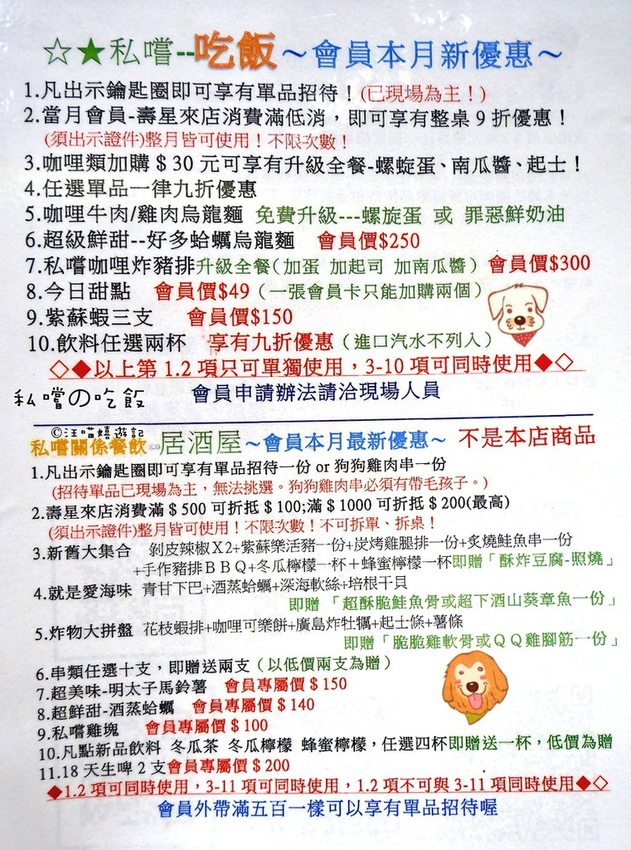 ☆★私嚐--吃飯～會員本月新優惠～
1.凡出示鑰匙圈即可享有單品招待！(已現場為主！)
2.當月會員-壽星來店消費滿低消，即可享有整桌9折優惠！
(須出示證件)整月皆可使用！不限次數！
3.咖哩類加購＄30元可享有升級全餐-螺蜁蛋、南瓜醬、起士！
4.任選單品一律九折優惠
5.咖哩牛肉/雞肉烏龍麵 免費升級---螺旋蛋 或 罪惡鮮奶油
6.超級鮮甜--好多蛤蠣烏龍麵 會員價$250
7.私嚐咖哩炸豬排升級全餐(加蛋 加起司 加南瓜醬) 會員價$300
8.今日甜點 會員價$49 (一張會員卡只能加購兩個)
9.紫蘇蝦三支 會員價$150
10.飲料任選兩杯 享有九折優惠 (進口汽水不列入)
◇◆以上第1.2項只可單獨使用，3-10項可同時使用◆◇
私嚐の吃飯 會員申請辦法請洽現場人員
©汪喵嬉遊記
私嚐關係餐飲--居酒屋～會員本月最新優惠～ 不是本店商品
1.凡出示鑰匙圈即可享有單品招待一份 or 狗狗雞肉串一份
(招待單品已現場為主，無法挑選。狗狗雞肉串必須有帶毛孩子。)
2.壽星來店消費滿＄500可折抵＄100;滿＄1000可折抵＄200(最高)
(須出示證件)整月皆可使用！不限次數！不可拆單、拆桌！
3.新舊大集合 剝皮辣椒X2+紫蘇樂活豬一份+炭烤雞腿排一份+炙燒鮭魚串一份
+手作豬排ＢＢＱ+冬瓜檸檬一杯＋蜂蜜檸檬一杯即贈「酥炸豆腐-照燒」
4.就是愛海味 青甘下巴+酒蒸蛤蠣+深海軟絲+培根干貝
即贈 「超酥脆鮭魚骨或超下酒山葵章魚一份」
5.炸物大拼盤 花枝蝦排+咖哩可樂餅+廣島炸牡蠣+起士條+薯條
即贈「脆脆雞軟骨或ＱＱ雞腳筋一份」
6.串類任選十支，即贈送兩支(以低價兩支為贈)
7.超美味-明太子馬鈴薯 會員專屬價＄150
8.超鮮甜-酒蒸蛤蠣 會員專屬價＄140
9.私嚐雞塊 會員專屬價＄100
10.凡點新品飲料 冬瓜茶 冬瓜檸檬 蜂蜜檸檬，任選四杯即贈送一杯，低價為贈
11.18天生啤2支會員專屬價＄200
◆1.2項可同時使用，3-11項可同時使用，1.2項不可與3-11項同時使用◆◇
會員外帶滿五百一樣可以享有單品招待喔